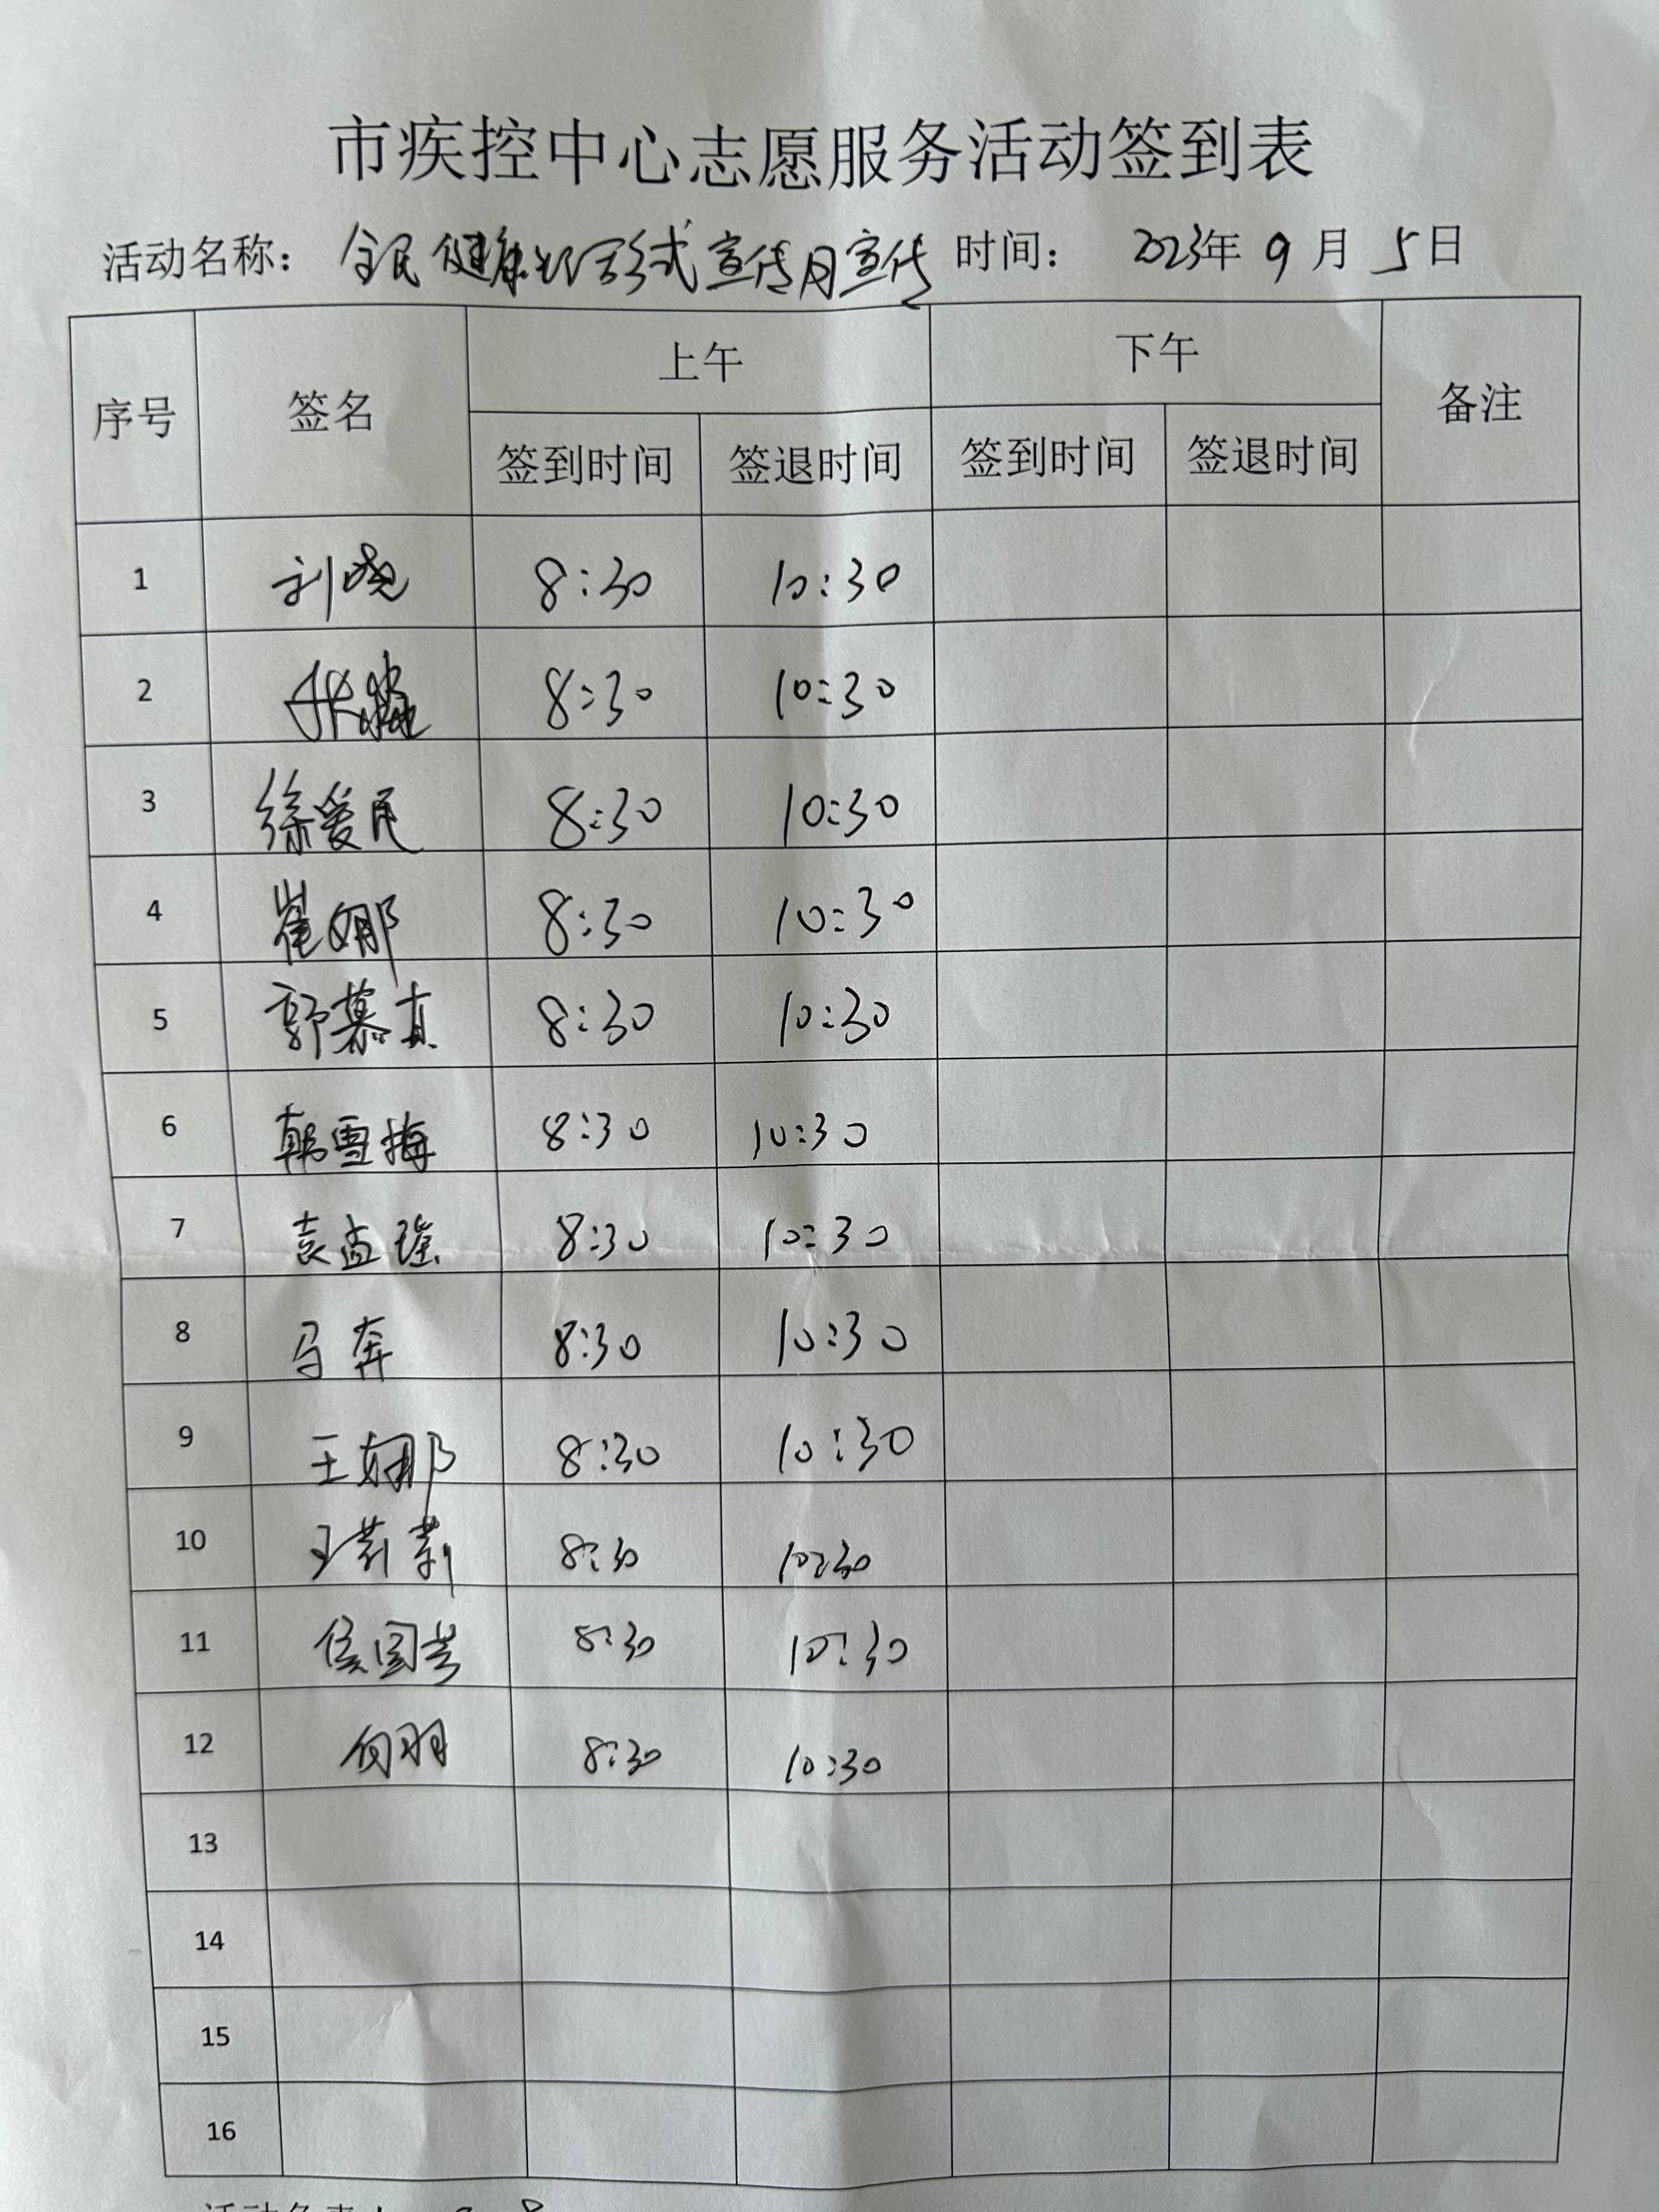 市疾控中心志愿服务活动签到表
活动名称： 全民健康生活方式宣传月宣传 时间： 2023年 9 月 5日
序号 签名 上午 下午 备注
签到时间 签退时间 签到时间 签退时间
1 刘晓 8:30 10:30
2 张 8:30 10:30
3 徐爱民 8:30 10:30
4 崔娜 8:30 10:30
5 郭慕真 8:30 10:30
6 韩雪梅 8:30 10:30
7 袁孟瑶 8:30 10:30
8 马奔 8:30 10:30
9 王娜 8:30 10:30
10 王莉莉 8:30 10:30
11 侯国 8:30 10:30
12 8:30 10:30
13
14
15
16